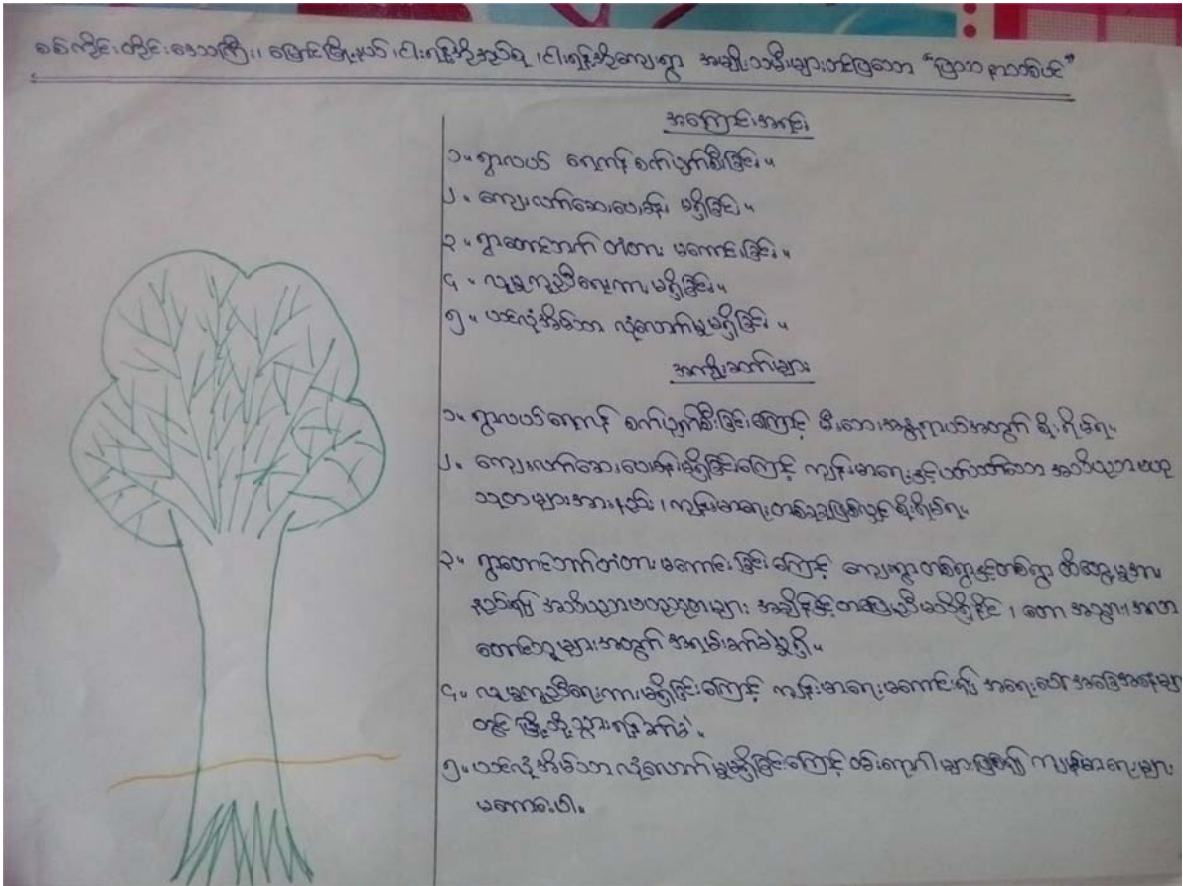 စစ်ကိုင်းတိုင်းဒေသကြီး၊ မြောင်မြို့နယ်၊ ငါးရန့်အုပ်စု၊ ငါးရန့်ကျေးရွာ အမျိုးသမီးများတင်ပြသော "ပြဿနာသစ်ပင်"
အကြောင်းအရင်း
၁။ ရွာလယ် ရေကန် စက်ပျက်စီးခြင်း။
၂။ ကျေးလက်ဆေးပေးခန်း မရှိခြင်း။
၃။ ရွာတောင်ဘက် တံတား မကောင်းခြင်း။
၄။ လူမှုကူညီရေးကား မရှိခြင်း။
၅။ ယင်လုံအိမ်သာ လုံလောက်မှုမရှိခြင်း။
အကျိုးဆက်များ
၁။ ရွာလယ်ရေကန် စက်ပျက်စီးခြင်းကြောင့် မီးဘေးအန္တရာယ်အတွက် စိုးရိမ်ရ။
၂။ ကျေးလက်ဆေးပေးခန်းမရှိခြင်းကြောင့် ကျန်းမာရေးနှင့်ပတ်သတ်သော အသိပညာဗဟု
သုတများအားနည်း၊ ကျန်းမာရေးတစ်ခုခုဖြစ်လျှင်စိုးရိမ်ရ။
၃။ ရွာတောင်ဘက်တံတားမကောင်းခြင်းကြောင့် ကျေးရွာတစ်ရွာနှင့်တစ်ရွာ ထိတွေ့မှုအား
နည်း၍ အသိပညာဗဟုသုတများ အချိန်နှင့်တပြေးညီမသိရှိနိုင်၊ တော အသွား အလာ
တောင်သူများအတွက် အရမ်းခက်ခဲမှုရှိ။
၄။ လူမှုကူညီရေးကားမရှိခြင်းကြောင့် ကျန်းမာရေးမကောင်း၍ အရေးပေါ်အခြေအနေများ
တွင် မြို့သို့သွားရန်ခက်ခဲ။
၅။ ယင်လုံအိမ်သာလုံလောက်မှုမရှိခြင်းကြောင့် ဝမ်းရောဂါများဖြစ်၍ ကျန်းမာရေးများ
မကောင်းပါ။